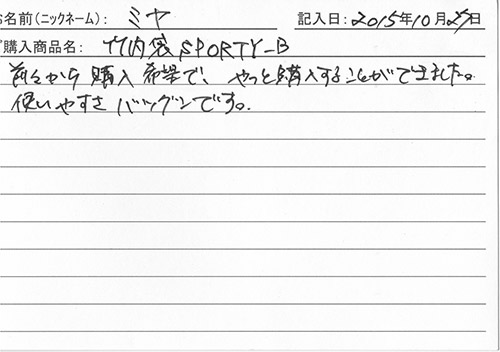 お名前(ニックネーム): ミヤ 記入日: 2015年10月27日
ご購入商品名: 竹内袋SPORTY-B
前々から購入希望で、やっと購入することができました。
使いやすさバツグンです。